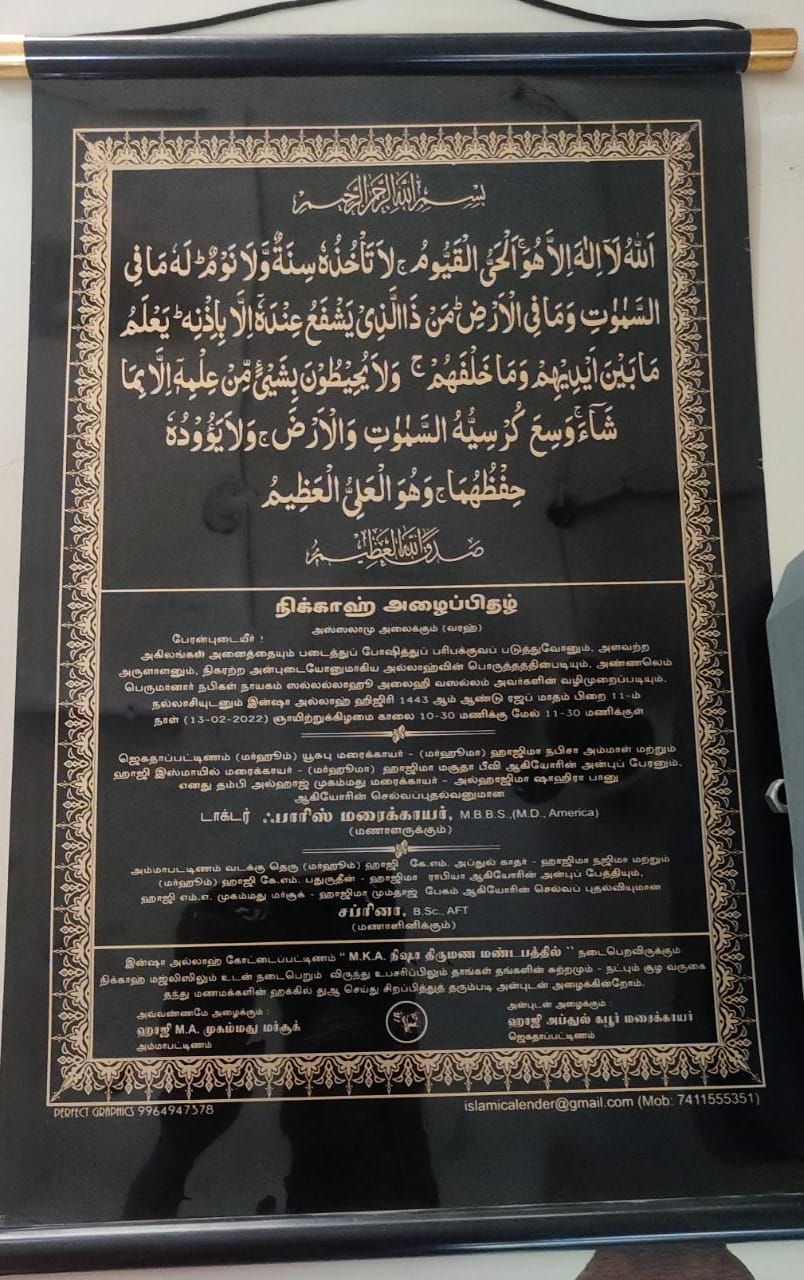 بِسْمِ اللهِ الرَّحْمٰنِ الرَّحِيْمِ
اَللهُ لَآ اِلٰهَ اِلَّا هُوَ ۚ اَلْحَيُّ الْقَيُّوْمُ ۚ لَا تَاْخُذُهٗ سِنَةٌ وَّلَا نَوْمٌ ؕ لَهٗ مَا فِى
السَّمٰوٰتِ وَمَا فِى الْاَرْضِ ؕ مَنْ ذَا الَّذِىْ يَشْفَعُ عِنْدَهٗٓ اِلَّا بِاِذْنِهٖ ؕ يَعْلَمُ
مَا بَيْنَ اَيْدِيْهِمْ وَمَا خَلْفَهُمْ ۚ وَلَا يُحِيْطُوْنَ بِشَيْءٍ مِّنْ عِلْمِهٖٓ اِلَّا بِمَا
شَآءَ ۚ وَسِعَ كُرْسِيُّهُ السَّمٰوٰتِ وَالْاَرْضَ ۚ وَلَا يَؤُوْدُهٗ
حِفْظُهُمَا ۚ وَهُوَ الْعَلِىُّ الْعَظِيْمُ
صَدَقَ اللهُ الْعَظِيْمُ
நிக்காஹ் அழைப்பிதழ்
அஸ்ஸலாமு அலைக்கும் (வரஹ்)
பேரன்புடையீர் !
அகிலங்கள் அனைத்தையும் படைத்துப் போஷித்துப் பரிபக்குவப் படுத்துவோனும், அளவற்ற
அருளாளனும், நிகரற்ற அன்புடையோனுமாகிய அல்லாஹ்வின் பொருத்தத்தின்படியும், அண்ணலெம்
பெருமானார் நபிகள் நாயகம் ஸல்லல்லாஹூ அலைஹி வஸல்லம் அவர்களின் வழிமுறைப்படியும்,
நல்லாசியுடனும் இன்ஷா அல்லாஹ் ஹிஜிரி 1443 ஆம் ஆண்டு ரஜப் மாதம் பிறை 11-ம்
நாள் (13-02-2022) ஞாயிற்றுக்கிழமை காலை 10-30 மணிக்கு மேல் 11-30 மணிக்குள்
ஜெகதாப்பட்டிணம் (மர்ஹூம்) யூசுபு மரைக்காயர் - (மர்ஹூமா) ஹாஜிமா நபிசா அம்மாள் மற்றும்
ஹாஜி இஸ்மாயில் மரைக்காயர் - (மர்ஹூமா) ஹாஜிமா மசூதா பீவி ஆகியோரின் அன்புப் பேரனும்,
எனது தம்பி அல்ஹாஜ் முகம்மது மரைக்காயர் - அல்ஹாஜிமா ஷாஹிரா பானு
ஆகியோரின் செல்வப்புதல்வனுமான
டாக்டர் ஃபாரிஸ் மரைக்காயர், M.B.B.S.,(M.D., America)
(மணாளருக்கும்)
அம்மாபட்டிணம் வடக்கு தெரு (மர்ஹூம்) ஹாஜி கே.எம். அப்துல் காதர் - ஹாஜிமா நஜிமா மற்றும்
(மர்ஹூம்) ஹாஜி கே.எம். பதுருதீன் - ஹாஜிமா ராபியா ஆகியோரின் அன்புப் பேத்தியும்,
ஹாஜி எம்.எ. முகம்மது மர்சூக் - ஹாஜிமா மும்தாஜ் பேகம் ஆகியோரின் செல்வப் புதல்வியுமான
சப்ரினா, B.Sc., AFT
(மணாளினிக்கும்)
இன்ஷா அல்லாஹ் கோட்டைப்பட்டிணம் “ M.K.A. நிஷா திருமண மண்டபத்தில் ” நடைபெறவிருக்கும்
நிக்காஹ் மஜ்லிஸிலும் உடன் நடைபெறும் விருந்து உபசரிப்பிலும் தாங்கள் தங்களின் சுற்றமும் - நட்பும் சூழ வருகை
தந்து மணமக்களின் ஹக்கில் துஆ செய்து சிறப்பித்துத் தரும்படி அன்புடன் அழைக்கின்றோம்.
அவ்வண்ணமே அழைக்கும் :
ஹாஜி M.A. முகம்மது மர்சூக்
அம்மாபட்டிணம்
அன்புடன் அழைக்கும் :
ஹாஜி அப்துல் கபூர் மரைக்காயர்
ஜெகதாப்பட்டிணம்
PERFECT GRAPHICS 9964947378
islamicalender@gmail.com (Mob: 7411555351)